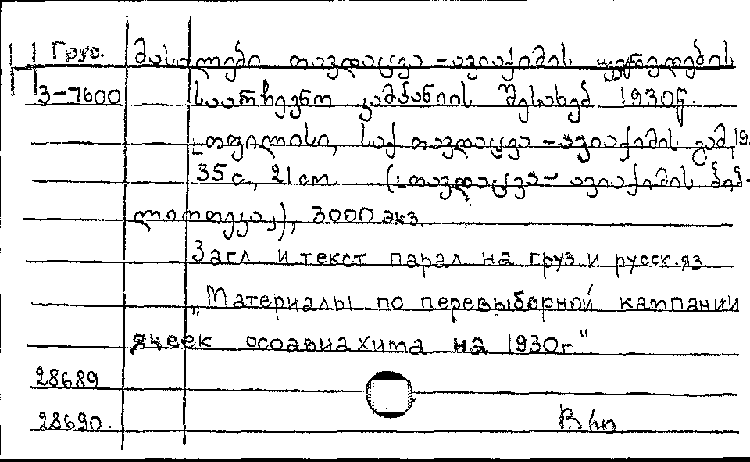 Груз. მასალები თავდაცვა-ავიაქიმის უჯრედების
3-7600 საარჩევნო კამპანიის შესახებ 1930წ.
თფილისი, საქ. თავდაცვა-ავიაქიმის გამ, 19
35 с., 21 cm (თავდაცვა-ავიაქიმის ბიბ-
ლიოთეკა), 3000 экз.
Загл и текст парал на груз и русск. яз
„Материалы по перевыборной кампании
ячеек осоавиахима на 1930г"
28689
28690.